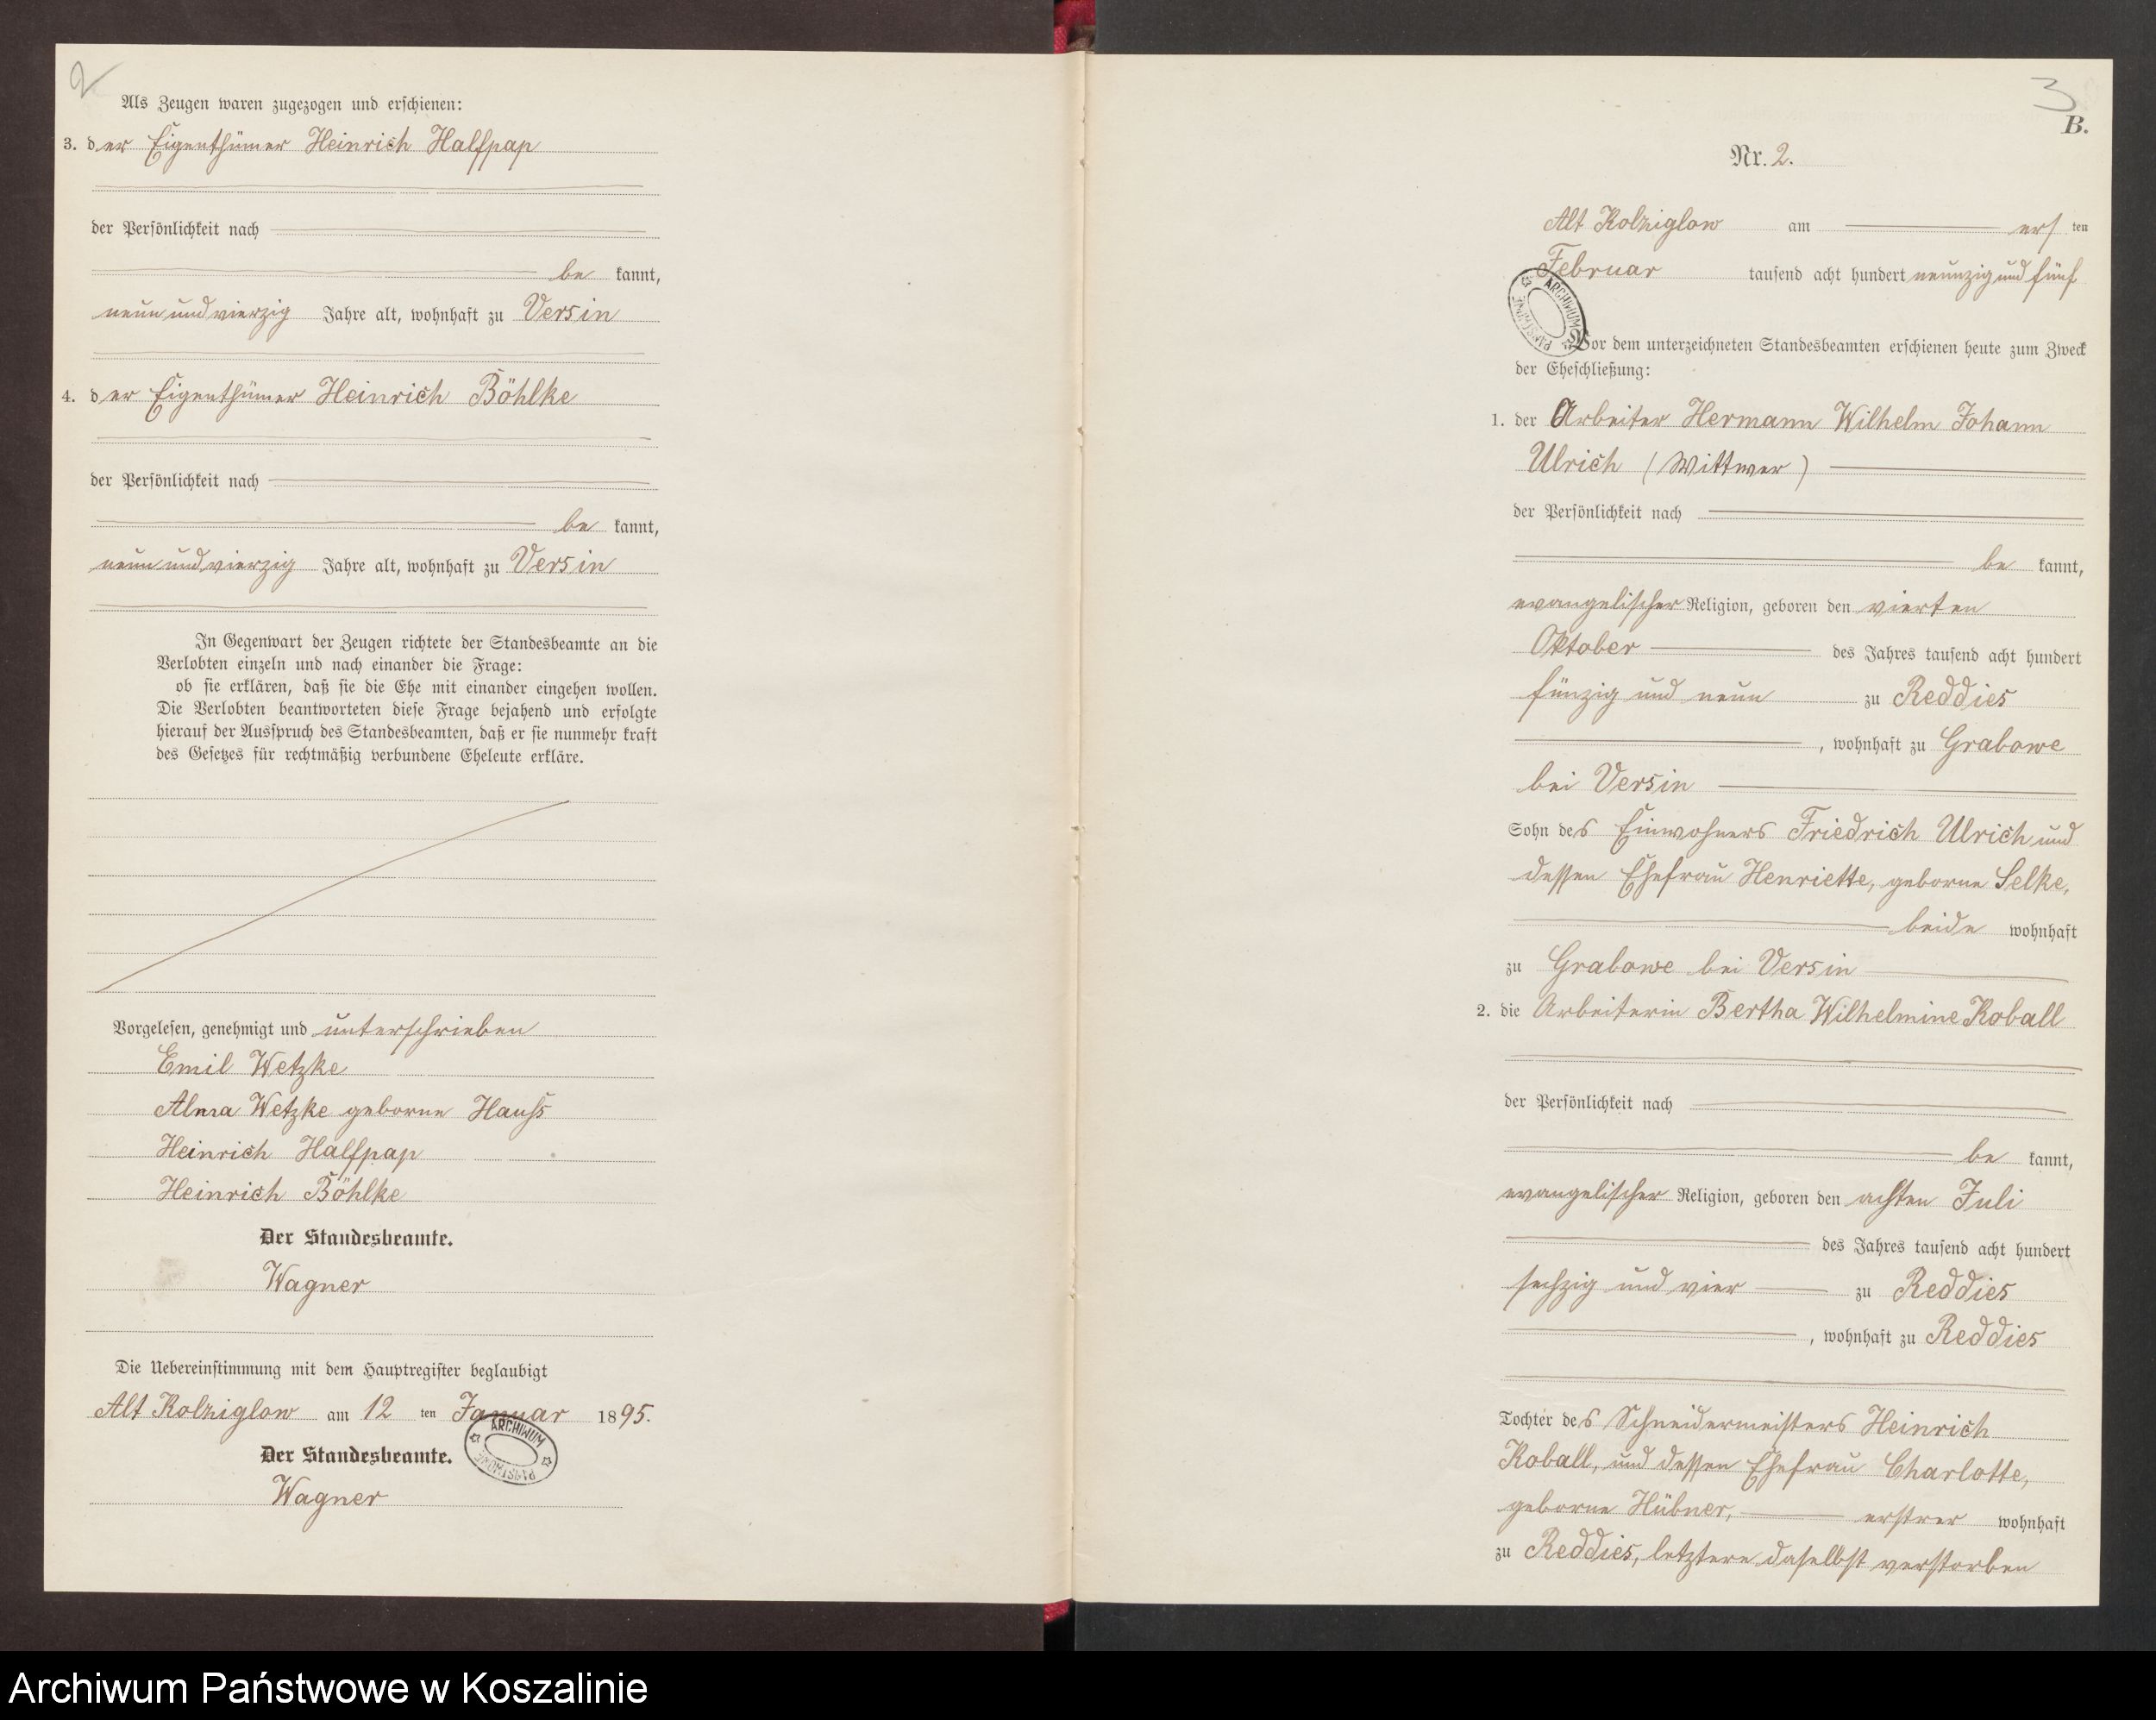 2
Als Zeugen waren zugezogen und erschienen:
3. der Eigenthümer Heinrich Halfpap
der Persönlichkeit nach
be kannt,
neun und vierzig Jahre alt, wohnhaft zu Versin
4. der Eigenthümer Heinrich Böhlke
der Persönlichkeit nach
be kannt,
neun und vierzig Jahre alt, wohnhaft zu Versin
In Gegenwart der Zeugen richtete der Standesbeamte an die
Verlobten einzeln und nach einander die Frage:
ob sie erklären, daß sie die Ehe mit einander eingehen wollen.
Die Verlobten beantworteten diese Frage bejahend und erfolgte
hierauf der Ausspruch des Standesbeamten, daß er sie nunmehr kraft
des Gesetzes für rechtmäßig verbundene Eheleute erkläre.
Vorgelesen, genehmigt und unterschrieben
Emil Wetzke
Alma Wetzke geborne Hauss
Heinrich Halfpap
Heinrich Böhlke
Der Standesbeamte.
Wagner
Die Uebereinstimmung mit dem Hauptregister beglaubigt
Alt Kolziglow am 12 ten Januar 1895.
Der Standesbeamte.
Wagner
ARCHIWUM PAŃSTWOWE
3
B.
Nr. 2.
Alt Kolziglow am ers ten
Februar tausend acht hundert neunzig und fünf
ARCHIWUM PAŃSTWOWE
Vor dem unterzeichneten Standesbeamten erschienen heute zum Zweck
der Eheschließung:
1. der Arbeiter Hermann Wilhelm Johann
Ulrich (Wittwer)
der Persönlichkeit nach
be kannt,
evangelischer Religion, geboren den vierten
Oktober des Jahres tausend acht hundert
fünzig und neun zu Reddies
, wohnhaft zu Grabowe
bei Versin
Sohn des Einwohners Friedrich Ulrich und
dessen Ehefrau Henriette, geborne Selke,
beide wohnhaft
zu Grabowe bei Versin
2. die Arbeiterin Bertha Wilhelmine Koball
der Persönlichkeit nach
be kannt,
evangelischer Religion, geboren den achten Juli
des Jahres tausend acht hundert
sechzig und vier zu Reddies
, wohnhaft zu Reddies
Tochter des Schneidermeisters Heinrich
Koball, und dessen Ehefrau Charlotte,
geborne Hübner, erstrer wohnhaft
zu Reddies, letztere daselbst verstorben
Archiwum Państwowe w Koszalinie